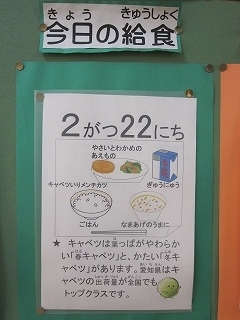 きょう きゅうしょく
今日の給食
2がつ22にち
やさいとわかめの
あえもの
キャベツいりメンチカツ
ぎゅうにゅう
ごはん
なまあげのうまに
★ キャベツは葉っぱがやわらか
い「春キャベツ」と、かたい「冬キ
ャベツ」があります。愛知県はキ
ャベツの出荷量が全国でも
トップクラスです。